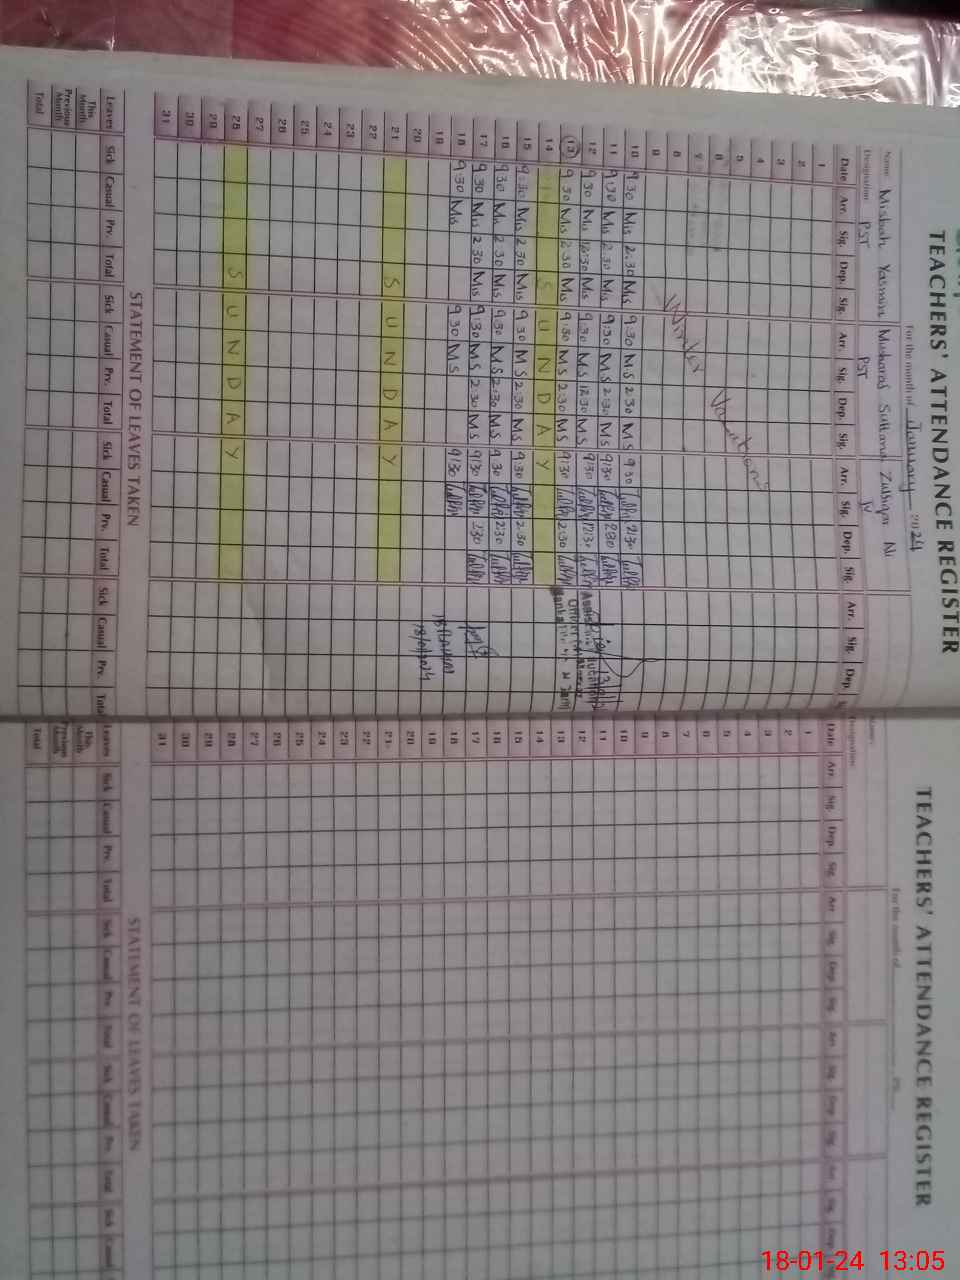 TEACHERS' ATTENDANCE REGISTER
For the month of January 2024
Name: Misbah Yasmin Musharaf Sultana Zulfiqar Ali
Designation: PST PST
Date Arr. Sig. Dep. Sig. Arr. Sig. Dep. Sig. Arr. Sig. Dep. Sig. Arr. Sig. Dep.
1
2
3
4
5
6
7
8
9
Winter Vacations
10 9:30 Mis 2:30 Mis 9:30 MS 2:30 MS 9:30 2:30
11 9:30 Mis 2:30 Mis 9:30 MS 2:30 MS 9:30 2:30
12 9:30 Mis 12:30 Mis 9:30 MS 12:30 MS 9:30 12:30
13 9:30 Mis 2:30 Mis 9:30 MS 2:30 MS 9:30 2:30
14 SUNDAY
15 9:30 Mis 2:30 Mis 9:30 MS 2:30 MS 9:30 2:30
16 9:30 Mis 2:30 Mis 9:30 MS 2:30 MS 9:30 2:30
17 9:30 Mis 2:30 Mis 9:30 MS 2:30 MS 9:30 2:30
18 9:30 Mis 9:30 MS 9:30
19
20
18/01/2024
21 SUNDAY
22
23
24
25
26
27
28 SUNDAY
29
30
31
STATEMENT OF LEAVES TAKEN
Leaves Sick Casual Prv. Total Sick Casual Prv. Total Sick Casual Prv. Total Sick Casual Prv. Total
This Month
Previous Month
Total
TEACHERS' ATTENDANCE REGISTER
For the month of
Name:
Designation:
Date Arr. Sig. Dep. Sig. Arr. Sig. Dep. Sig. Arr. Sig. Dep. Sig. Arr. Sig. Dep.
1
2
3
4
5
6
7
8
9
10
11
12
13
14
15
16
17
18
19
20
21
22
23
24
25
26
27
28
29
30
31
STATEMENT OF LEAVES TAKEN
Leaves Sick Casual Prv. Total Sick Casual Prv. Total Sick Casual Prv. Total Sick Casual
This Month
Previous Month
Total
18-01-24 13:05